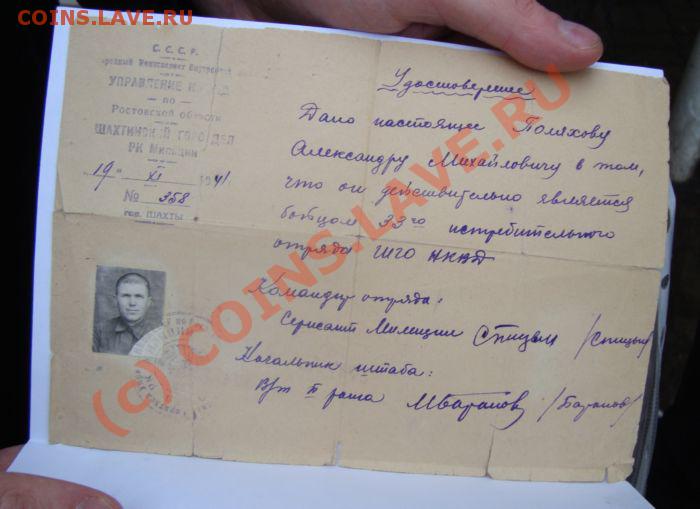 COINS.LAVE.RU
С. С. С. Р.
УПРАВЛЕНИЕ
по
Ростовской области
ШАХТИНСКИЙ ГОРОТДЕЛ
РК Милиции
19" XI 1941.
№ 358
гор. ШАХТЫ
Удостоверение
Дано настоящее Полякову
Александру Михайловичу в том,
что он действительно является
бойцом 33го истребительного
отряда ШГО НКВД
Командир отряда:
Сержант Милиции
Начальник штаба:
Баранов /Баранов/
(c) COINS.LAVE.RU